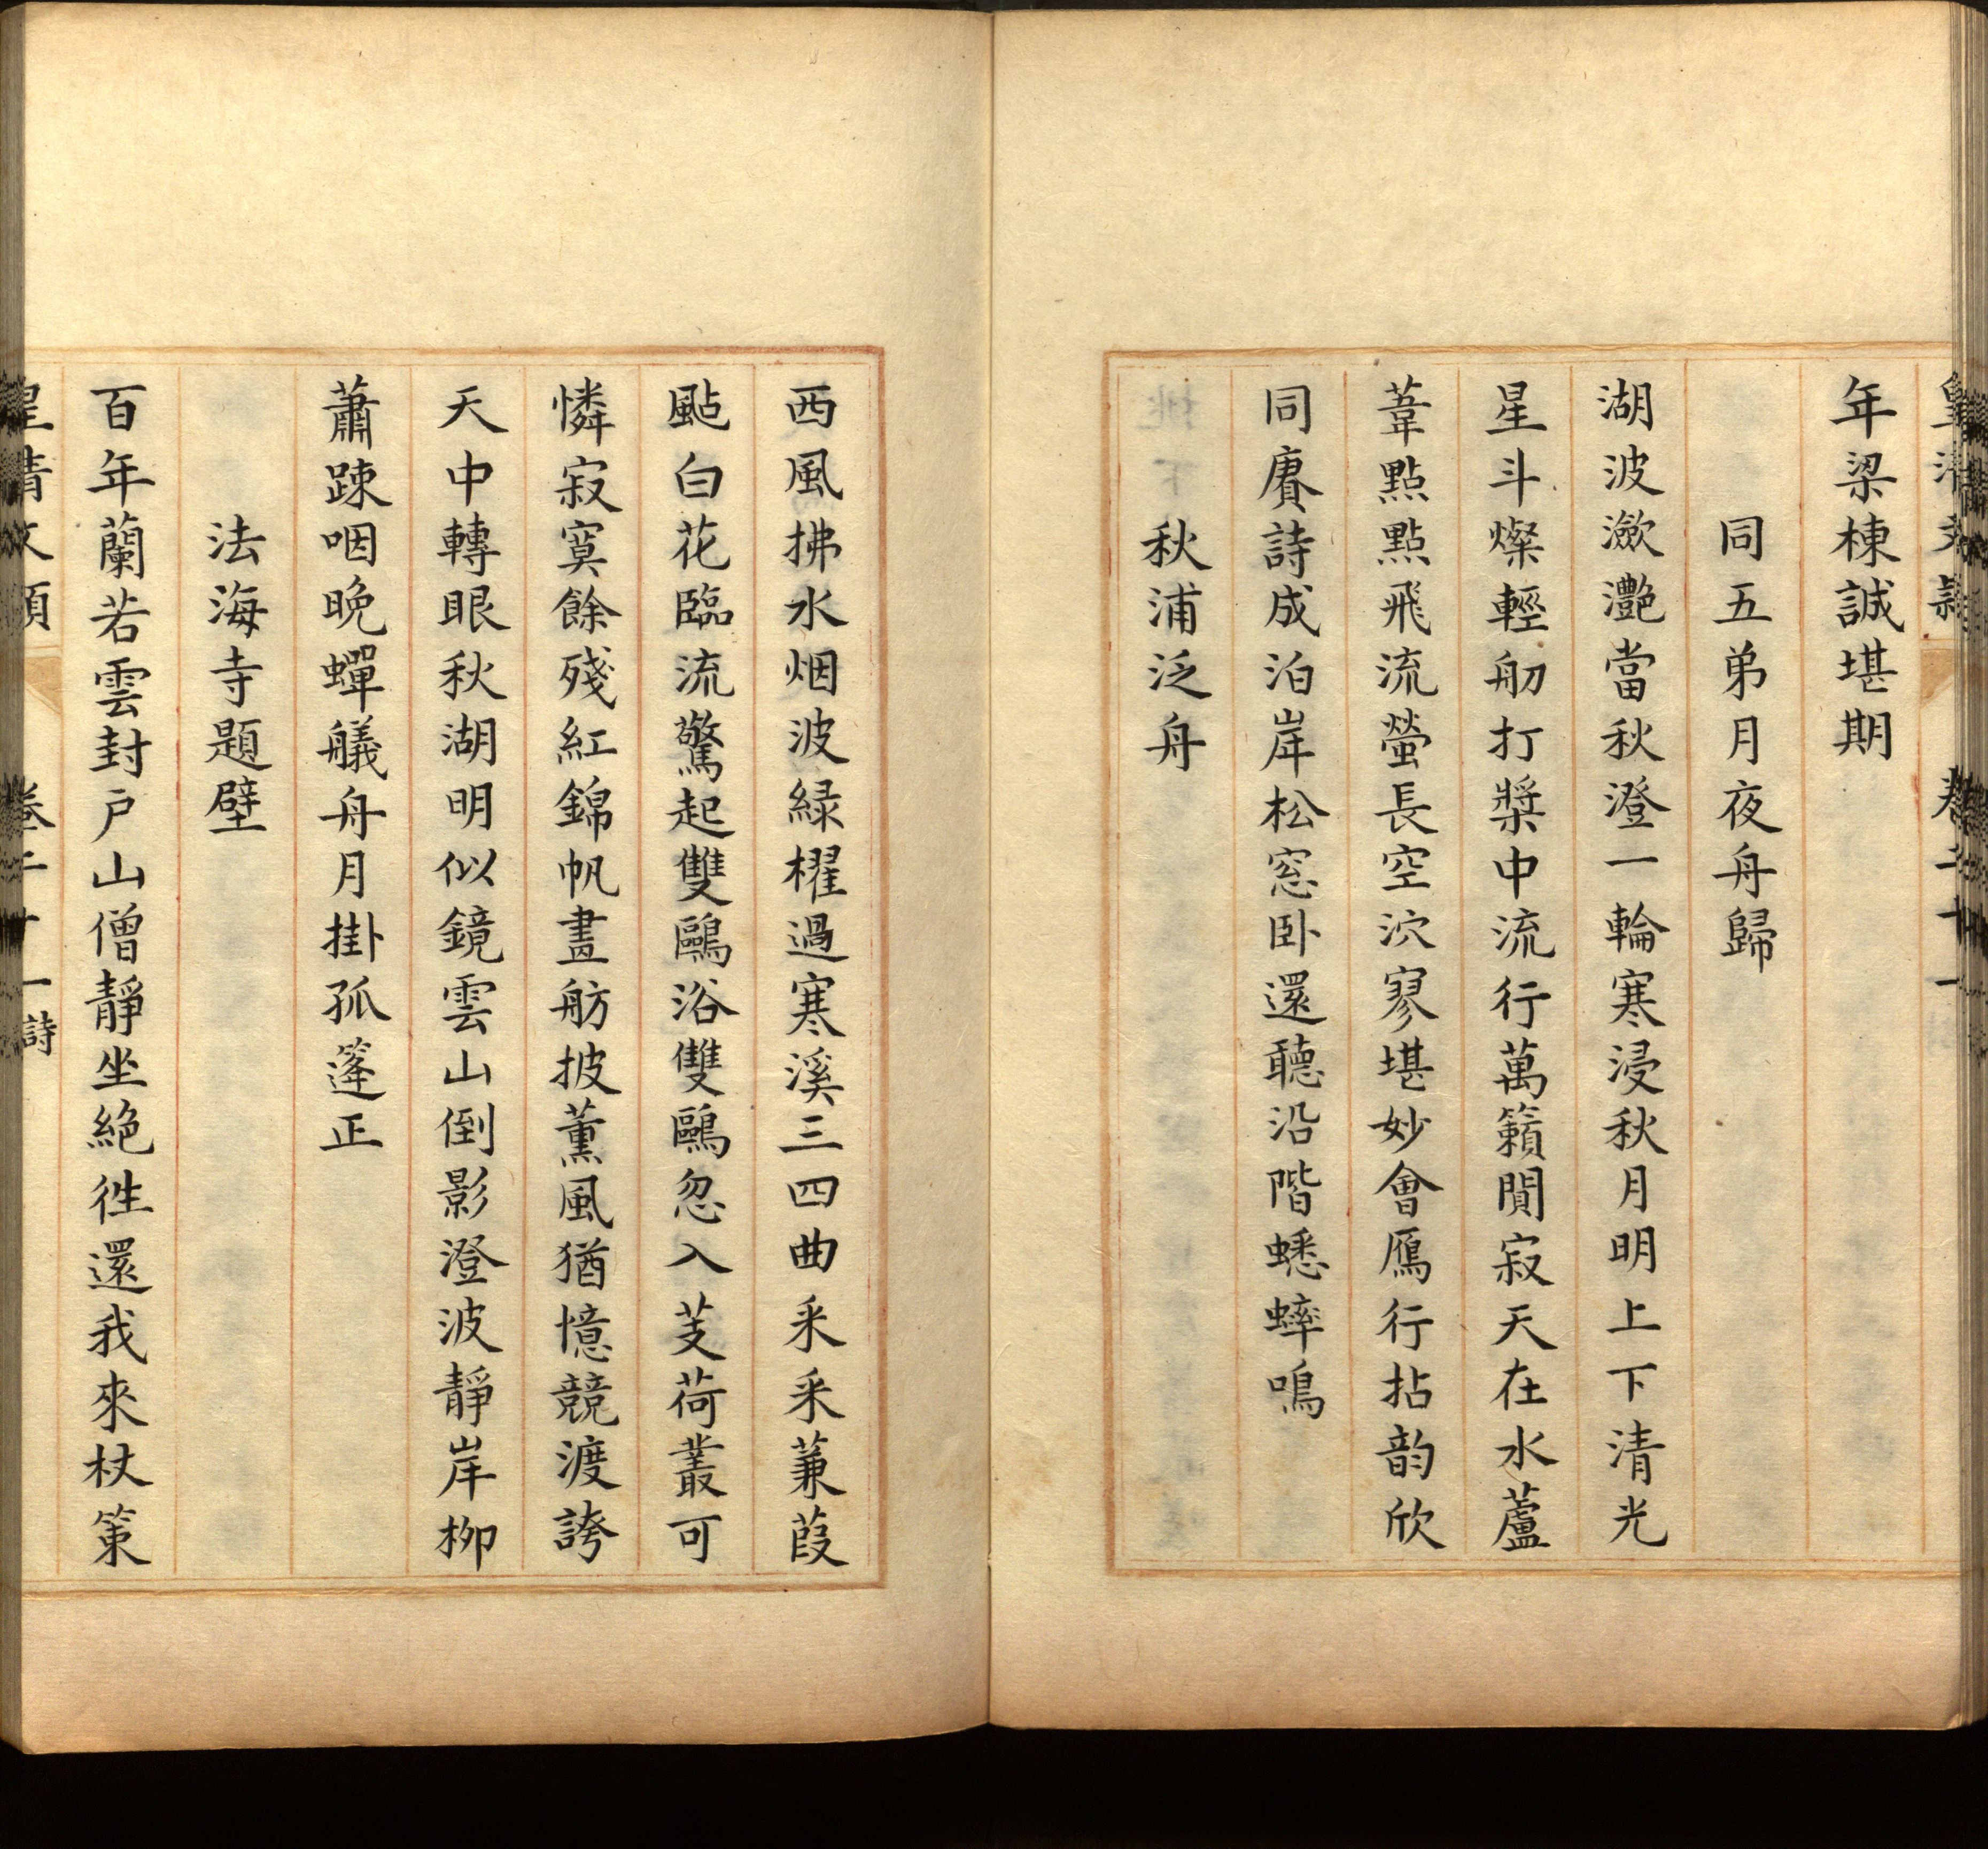 年梁棟誠堪期
同五弟月夜舟歸
湖波瀲灔當秋澄一輪寒浸秋月明上下清光
星斗燦輕舠打槳中流行萬籟閴寂天在水蘆
葦點點飛流螢長空泬寥堪妙會鴈行拈韵欣
同賡詩成泊岸松窓卧還聽沿階蟋蟀鳴
秋浦泛舟
西風拂水烟波綠櫂過寒溪三四曲釆釆蒹葭
颭白花臨流驚起雙鷗浴雙鷗忽入芰荷叢可
憐寂寞餘殘紅錦帆畫舫披薰風猶憶競渡誇
天中轉眼秋湖明似鏡雲山倒影澄波靜岸柳
蕭踈咽晚蟬艤舟月掛孤篷正
法海寺題壁
百年蘭若雲封戶山僧靜坐絶徃還我來杖策
皇清文穎 卷二十一 詩